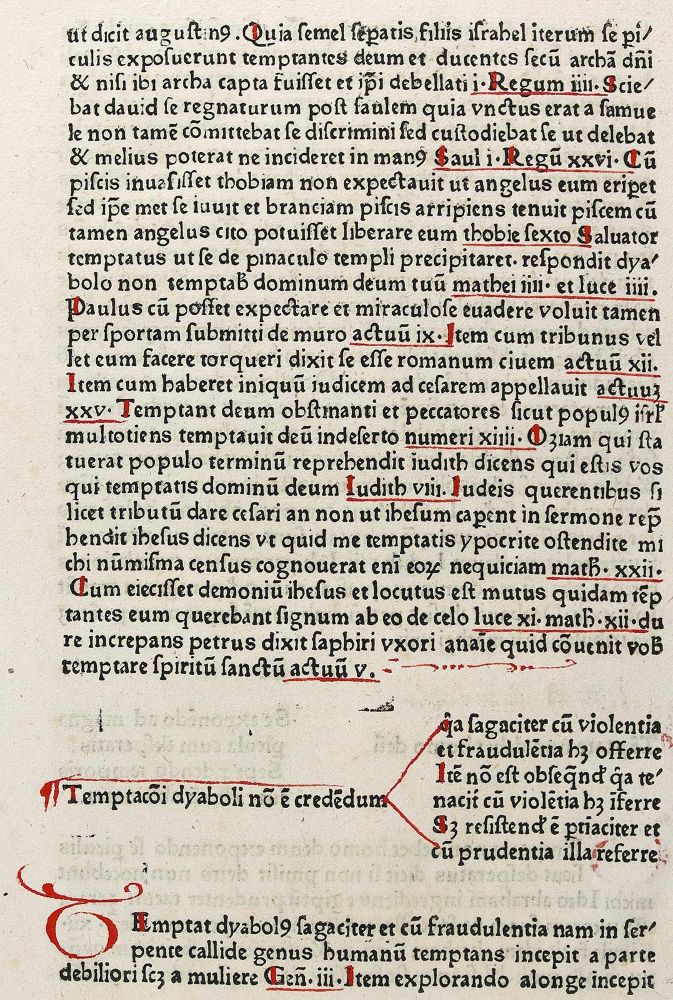 ut dicit augustinꝰ. Quia semel sepatis filiis israhel iterum se pi/
culis exposuerunt temptantes deum et ducentes secū archā dn̄i
& nisi ibi archa capta fuisset et ip̄i debellati i·Regum iiii·Scie/
bat dauid se regnaturum post saulem quia vnctus erat a samue
le non tamē cōmittebat se discrimini sed custodiebat se ut delebat
& melius poterat ne incideret in manꝰ Saul i·Regū xxvi·Cū
piscis inuasisset thobiam non expectauit ut angelus eum eripet
sed ip̄e met se iuuit et branciam piscis arripiens tenuit piscem cū
tamen angelus cito potuisset liberare eum thobie sexto Saluator
temptatus ut se de pinaculo templi precipitaret· respondit dya/
bolo non temptab̄ dominum deum tuū mathei iiii· et luce iiii.
Paulus cū posset expectare et miraculose euadere voluit tamen
per sportam submitti de muro actuū ix·Item cum tribunus vel
let eum facere torqueri dixit se esse romanum ciuem actuū xii.
Item cum haberet iniquū iudicem ad cesarem appellauit actuuꝫ
xxv·Temptant deum obstinanti et peccatores sicut populꝰ isrl̄
multotiens temptauit deū indeserto numeri xiiii·Oziam qui sta
tuerat populo terminū reprehendit iudith dicens qui estis vos
qui temptatis dominū deum Iudith viii. Iudeis querentibus si
licet tributū dare cesari an non ut ihesum capent in sermone rep̄
hendit ihesus dicens vt quid me temptatis ypocrite ostendite mi
chi nūmisma census cognouerat eni eoꝝ nequiciam math·xxii·
Cum eiecisset demoniū ihesus et locutus est mutus quidam tēp
tantes eum querebant signum ab eo de celo luce xi·math·xii·du
re increpans petrus dixit saphiri vxori anaīe quid cōuenit vob̄
temptare spiritū sanctū actuū v.
q̄a sagaciter cū violentia
et fraudulētia hꝫ offerre
Temptacōi dyaboli nō ē credēdum
Itē nō est obseqnd̄ q̄a te/
nacit̄ cū violētia hꝫ īferre
Sꝫ resistend̄ ē ptiaciter et
cū prudentia illa referre
TEmptat dyabolꝰ sagaciter et cū fraudulentia nam in ser/
pente callide genus humanū temptans incepit a parte
debiliori scꝫ a muliere Gen̄. iii·Item explorando alonge incepit